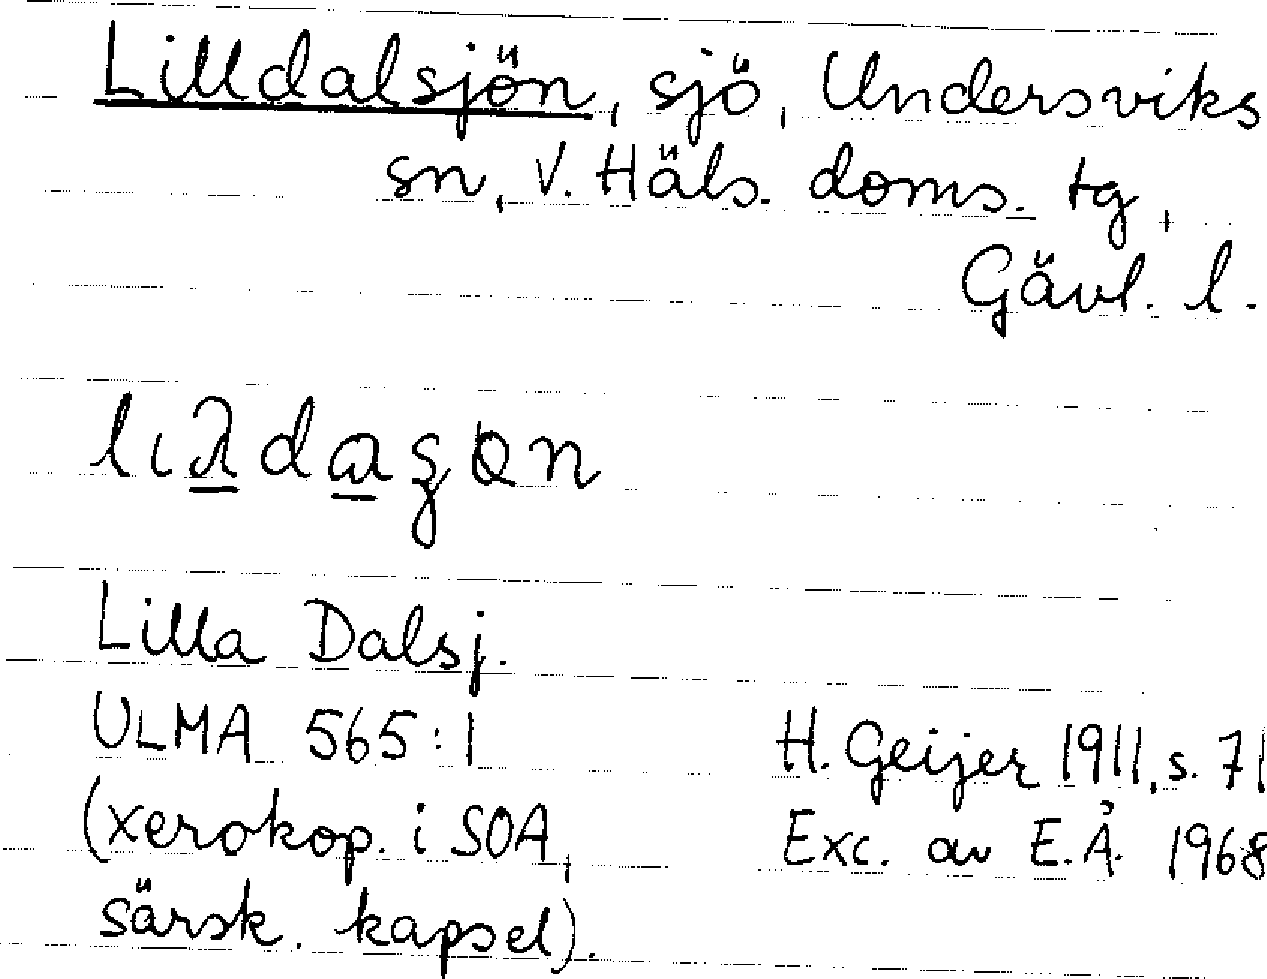 Lilldalsjön, sjö, Undersviks
sn, V. Häls. doms. tg,
Gävl. l.
Lilla Dalsj.
ULMA 565:1
H. Geijer 1911, s. 71
(xerokop. i SOA,
Exc. av E.Å. 1968
särsk. kapsel).